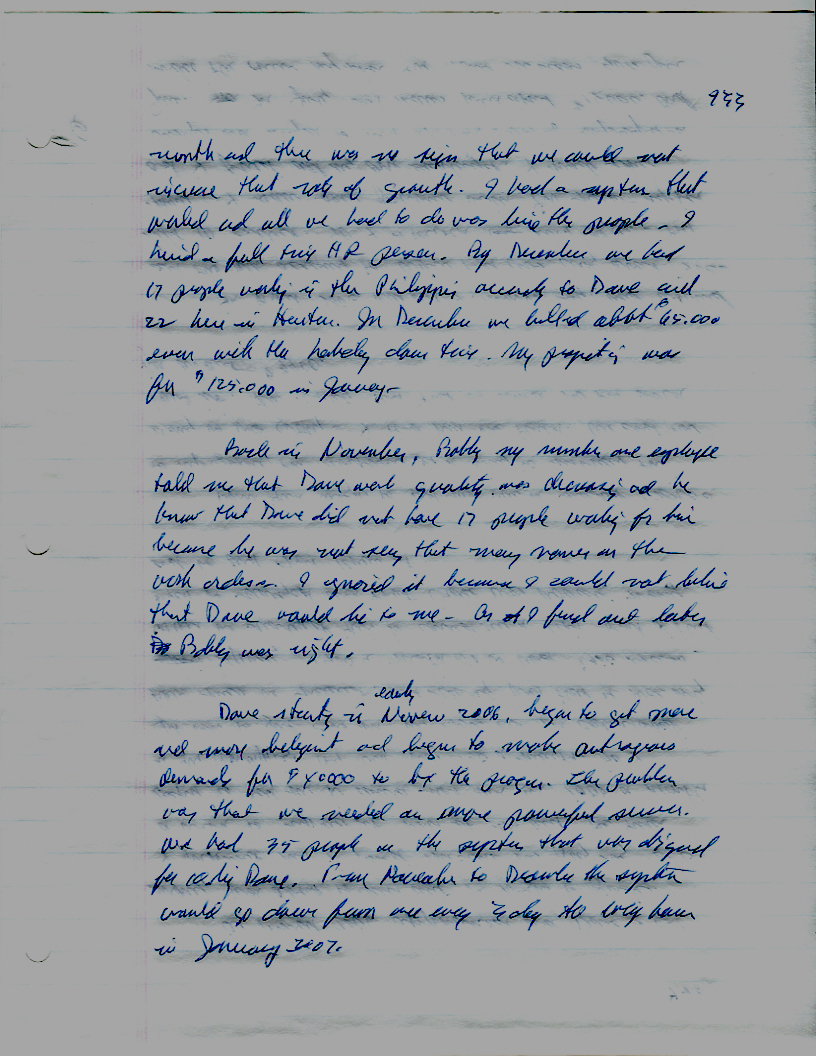 933
month and there was no sign that we could not
increase that rate of growth. I had a system that
worked ad all we had to do was hire the people. I
hired a full time HR person. By December we had
17 people working in the Philippines according to Dave and
22 here in Houston. In December we billed about $65.000
even with the holiday down time. My projection was
for $125.000 in January.
Back in November, Bobby my number one employee
told me that Dave work quality was decreasing ad he
knew that Dave did not have 17 people working for him
because he was not seeing that many names on the
work orders. I ignored it because I could not belive
that Dave would lie to me. As I found out later
Bobby was right.
early
Dave starting in 2006, began to get more
and more beligerent ad began to make outrageous
demands for to fix the program. The problem
was that we needed an more powerful server.
We had 35 people on the system that was designed
for Dave. From November to December the system
would go down from one every day to every hour
in January 2007.